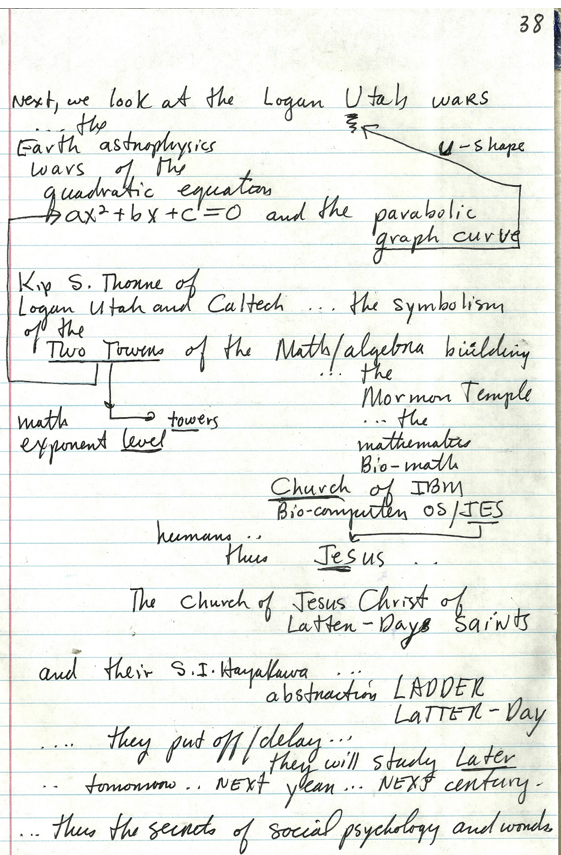 38
Next, we look at the Logan Utah wars
.... the
Earth astrophysics
wars of the
quadratic equation
U-shape
ax²+bx+c=0 and the parabolic
graph curve
Kip S. Thorne of
Logan Utah and Caltech ... the symbolism
of the
Two Towers of the Math/algebra building
... the
Mormon Temple
math → towers
exponent level
... the
mathematics
Bio-math
Church of IBM
Bio-computer OS/JES
humans ..
thus Jesus ..
The Church of Jesus Christ of
Latter-Day Saints
and their S.I. Hayakawa ...
abstraction LADDER
LaTTER-Day
.... they put off/delay...
they will study Later
.. tomorrow.. NEXT year... NEXT century.
... thus the secrets of social psychology and words